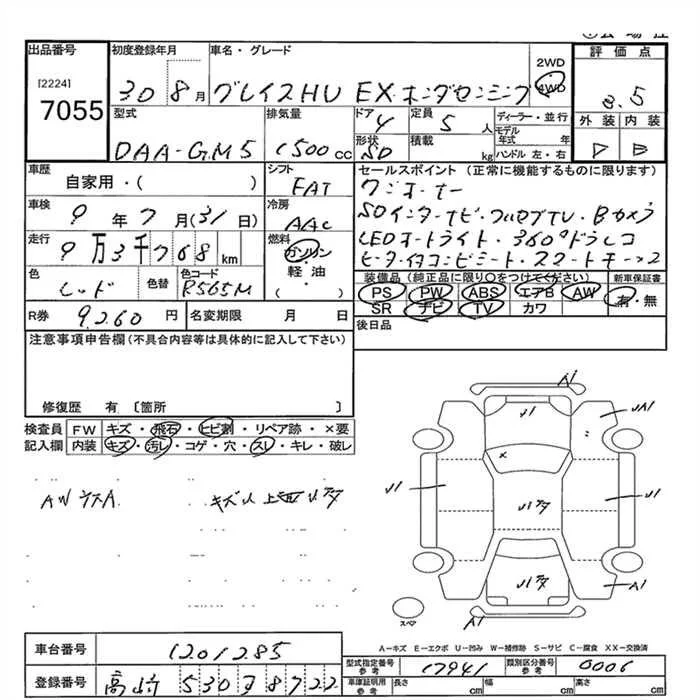 出品番号
[2224]
7055
初度登録年月
30 8月
車名・グレード
グレイスHV EX・ホンダセンシング
2WD
4WD
評価点
3.5
外装
内装
型式
DAA-GM5
排気量
1500cc
ドア
4
定員
5人
形状
SD
積載
kg
ディーラー・並行
モデル年式
年
ハンドル 左・右
車歴
自家用・( )
シフト
FAT
セールスポイント (正常に機能するものに限ります)
ワンオーナー
SDインターナビ・フルセグTV・Bカメラ
LEDオートライト・360°ドラレコ
車検
9年7月(31日)
冷房
AAC
走行
9万3千768km
燃料
ガソリン・
軽油・
( )
色
レッド
色替
色コード
R565M
装備品 (純正品に限り○をつけてください)
新車保証書
PS PW ABS エアB AW
SR ナビ TV カワ
有・無
R券
9,260円
名変期限
月 日
後日品
注意事項申告欄(不具合内容等は具体的に記入して下さい)
修復歴 有 〔箇所 〕
検査員記入欄
FW キズ・飛石・ヒビ割・リペア跡・×要
内装 キズ・汚レ・コゲ・穴・スレ・キレ・破レ
A1
U1
UA1
U1
U1
A1
A1
スペア
A-キズ E-エクボ U-凹み W-補修跡 S-サビ C-腐食 XX-交換済
車台番号
1201285
登録番号
高崎 530 ヨ 8722
型式指定番号
参考
17941
類別区分番号
参考
0006
車庫証明用
参考
長さ cm
幅 cm
高さ cm